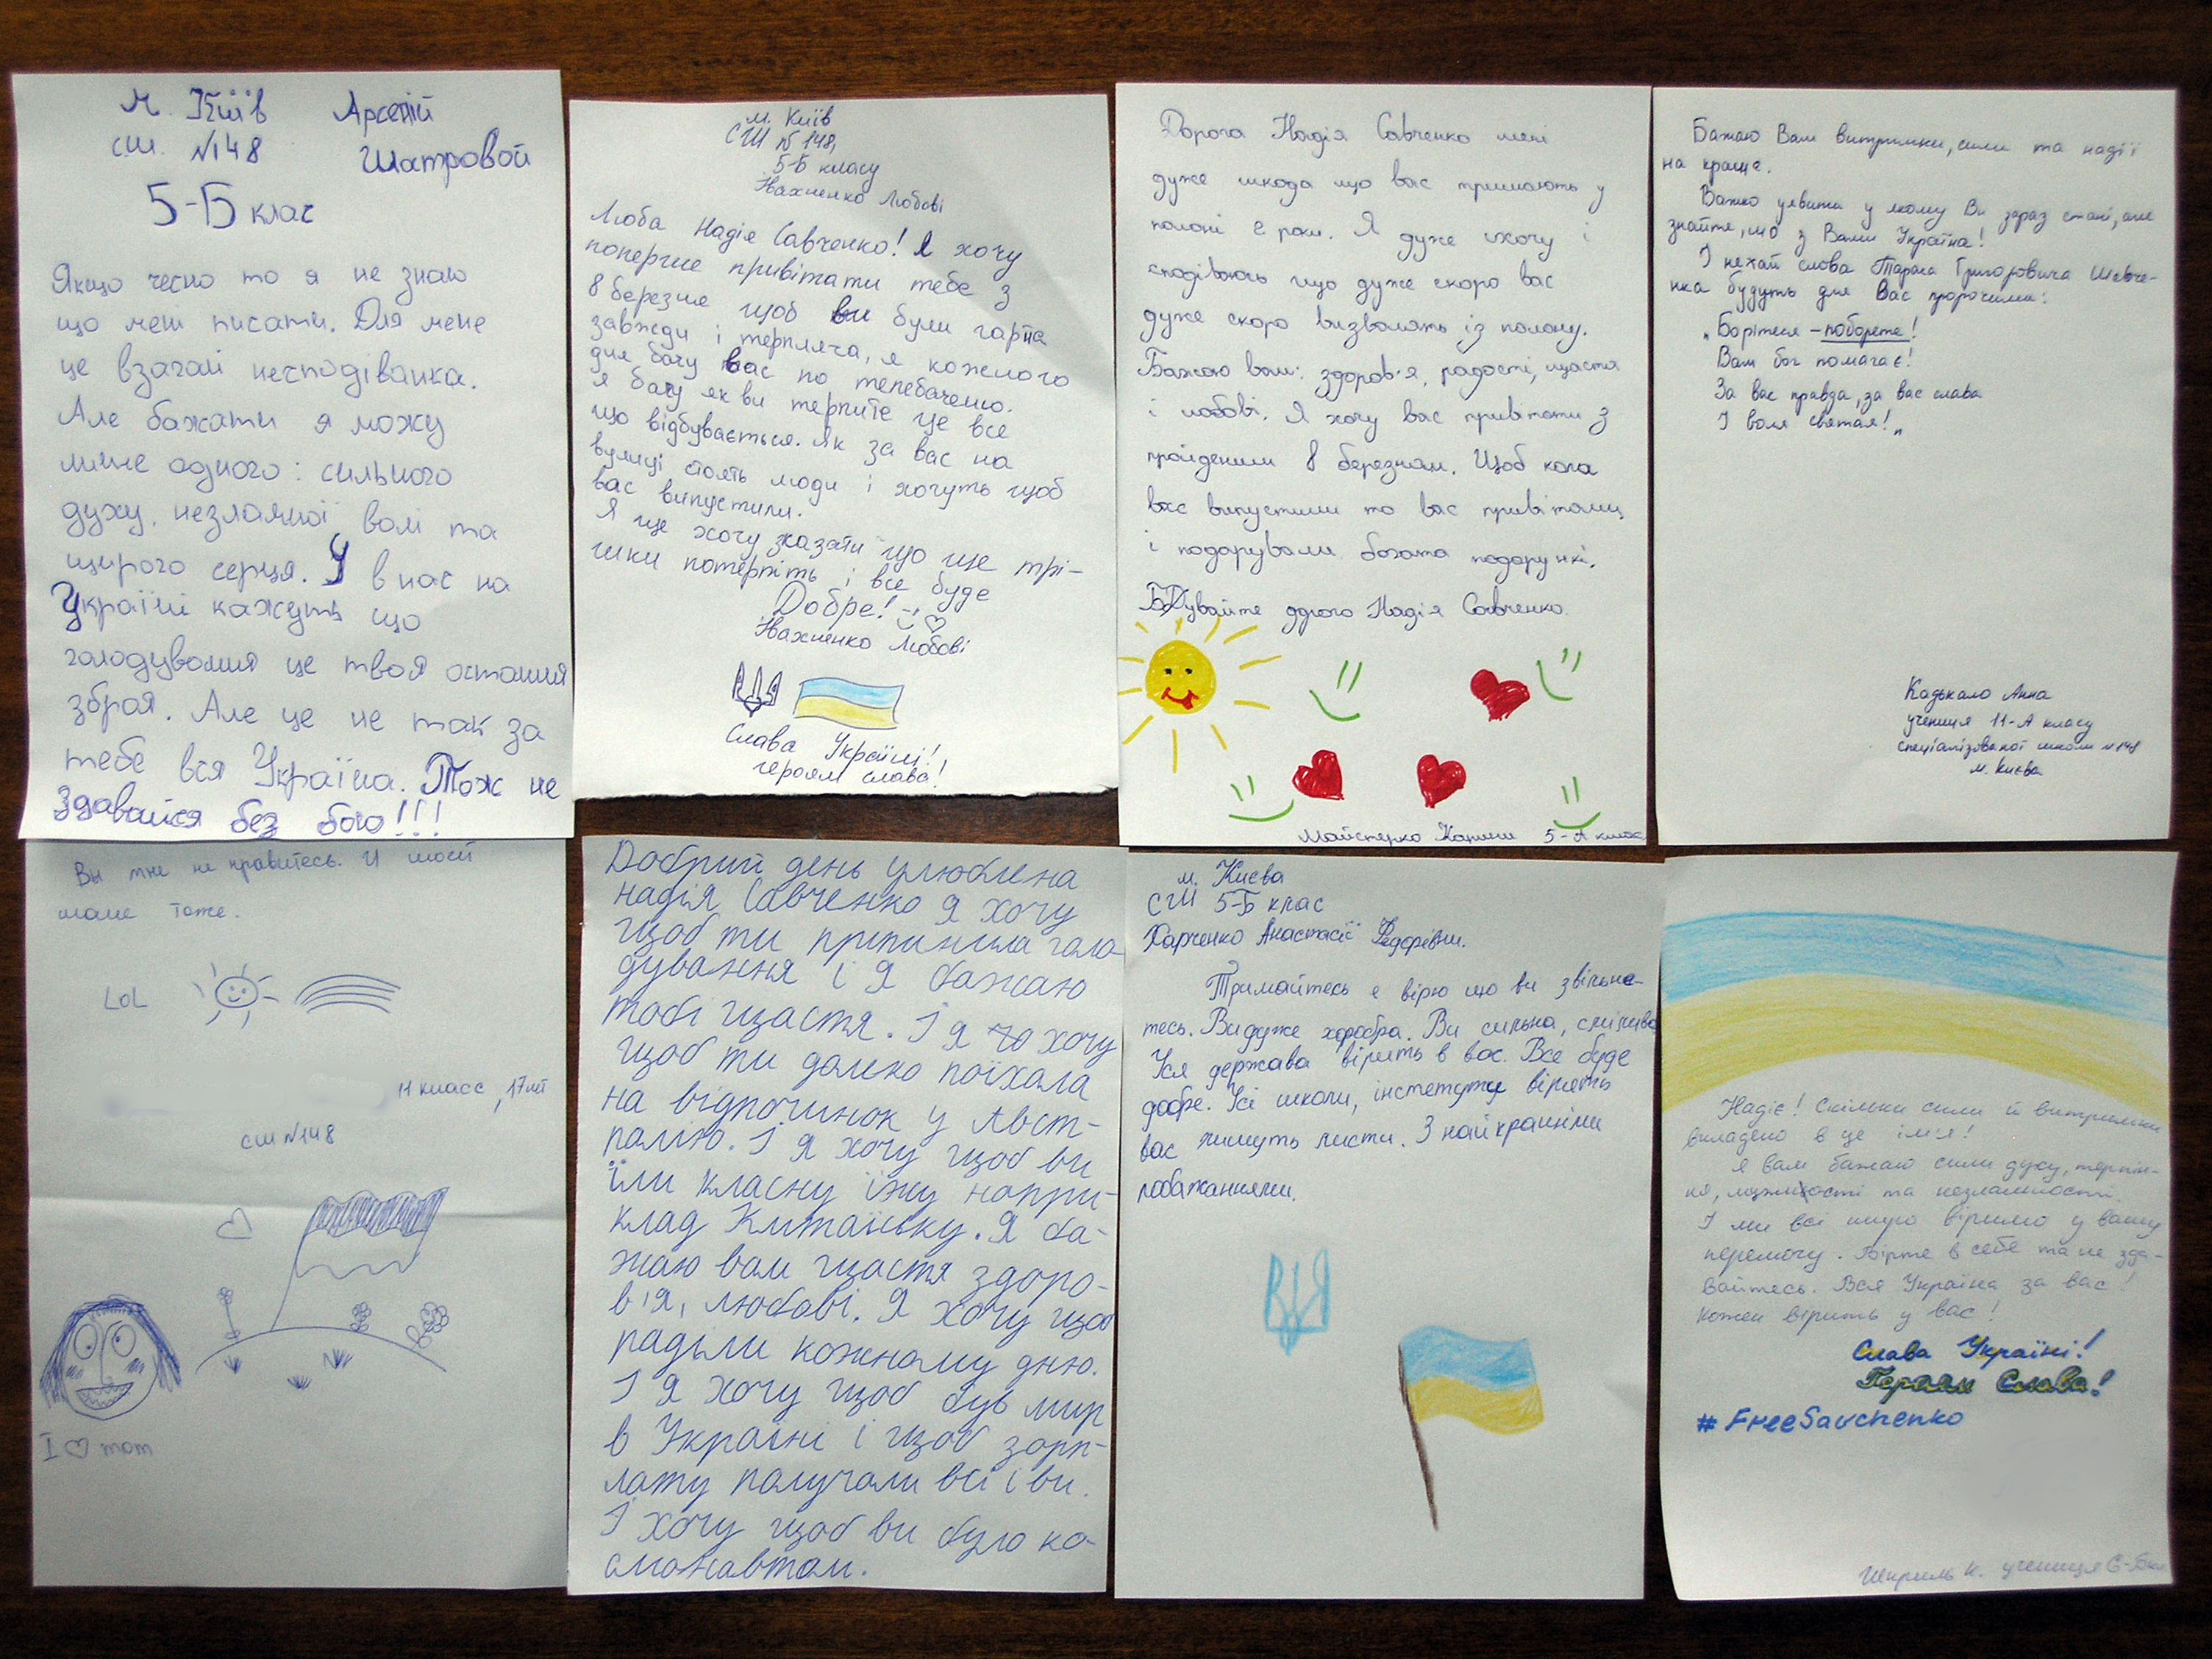 м. Київ Арсеній
сш. №148 Шатровой
5-Б клас
Якщо чесно то я не знаю
що мені писати. Для мене
це взагалі несподіванка.
Але бажати я можу
лише одного: сильного
духу, незламної волі та
щирого серця. У в нас на
Україні кажуть що
голодування це твоя остання
зброя. Але це не так за
тебе вся Україна. Тож не
здавайся без бою!!!
м. Київ
СШ №148,
5-Б класу
Нахненко Любові
Люба Надія Савченко! Я хочу
поперше привітати тебе з
8 березня щоб ви були гарна
завжди і терпляча, я кожного
дня бачу вас по телебаченю.
я бачу як ви терпите це все
що відбувається. Як за вас на
вулиці стоять люди і хочуть щоб
вас випустили.
Я ще хочу сказати що ще трі-
шки потерпіть і все буде
Добре!
Нахненко Любові
Слава Україні!,
героям слава!
Дорога Надія Савченко мені
дуже шкода що вас тримають у
полоні 2 роки. Я дуже хочу і
сподіваюсь що дуже скоро вас
дуже скоро визволять із полону.
Бажаю вам: здоров'я, радості, щастя
і любові. Я хочу вас привітати з
пройденим 8 березням. Щоб кола
вас випустили то вас привітали
і подарували богата подарункі.
Бувайте дорого Надія Савченко.
Майстерко 5-А клас
Бажаю Вам витримки, сили та надії
на краще.
Важко уявити у якому Ви зараз стані, але
знайте, що з Вами Україна!
І нехай слова Тараса Григоровича Шевче-
нка будуть для Вас пророчими:
„Борітеся – поборете!
Вам бог помагає!
За вас правда, за вас слава
І воля святая!„
Кадькало Анна
учениця 11-А класу
спеціалізованої школи №148
м. Києва
Вы мне не нравитесь. И моей
маме тоже.
LOL
11 класс, 17 лет
сш №148
I ♡ mom
Добрий день улюблена
надія Савченко я хочу
щоб ти припинила голо-
дування і я бажаю
тобі щастя. І я хочу
щоб ти далеко поїхала
на відпочинок у Авст-
ралію. І я хочу щоб ви
їли класну їжу напри-
клад Китайську. Я ба-
жаю вам щастя здоро-
в'я, любові. Я хочу щоб
раділи кожному дню.
І я хочу щоб був мир
в Україні і щоб зарп-
лату получали всі і ви.
І хочу щоб ви було ко-
смонавтом.
м. Києва
СШ 5-Б клас
Харченко Анастасії Федорівни.
Тримайтесь я вірю що ви звільне-
тесь. Ви дуже хоробра. Ви сильна, смілива
Уся держава вірить в вас. Все буде
добре. Усі школи, інстетути вірять
вас пишуть листи. З найкращими
побажаннями.
Надіє! Скільки сили й витримки
вкладено в це ім'я!
Я вам бажаю сили духу, терпін-
ня, мужності та незламності.
І ми всі щиро віримо у вашу
перемогу. Вірте в себе та не зда-
вайтесь. Вся Україна за вас!
Кожен вірить у вас!
Слава Україні!
Героям Слава!
#FreeSavchenko
Шкриль К. учениця 6-